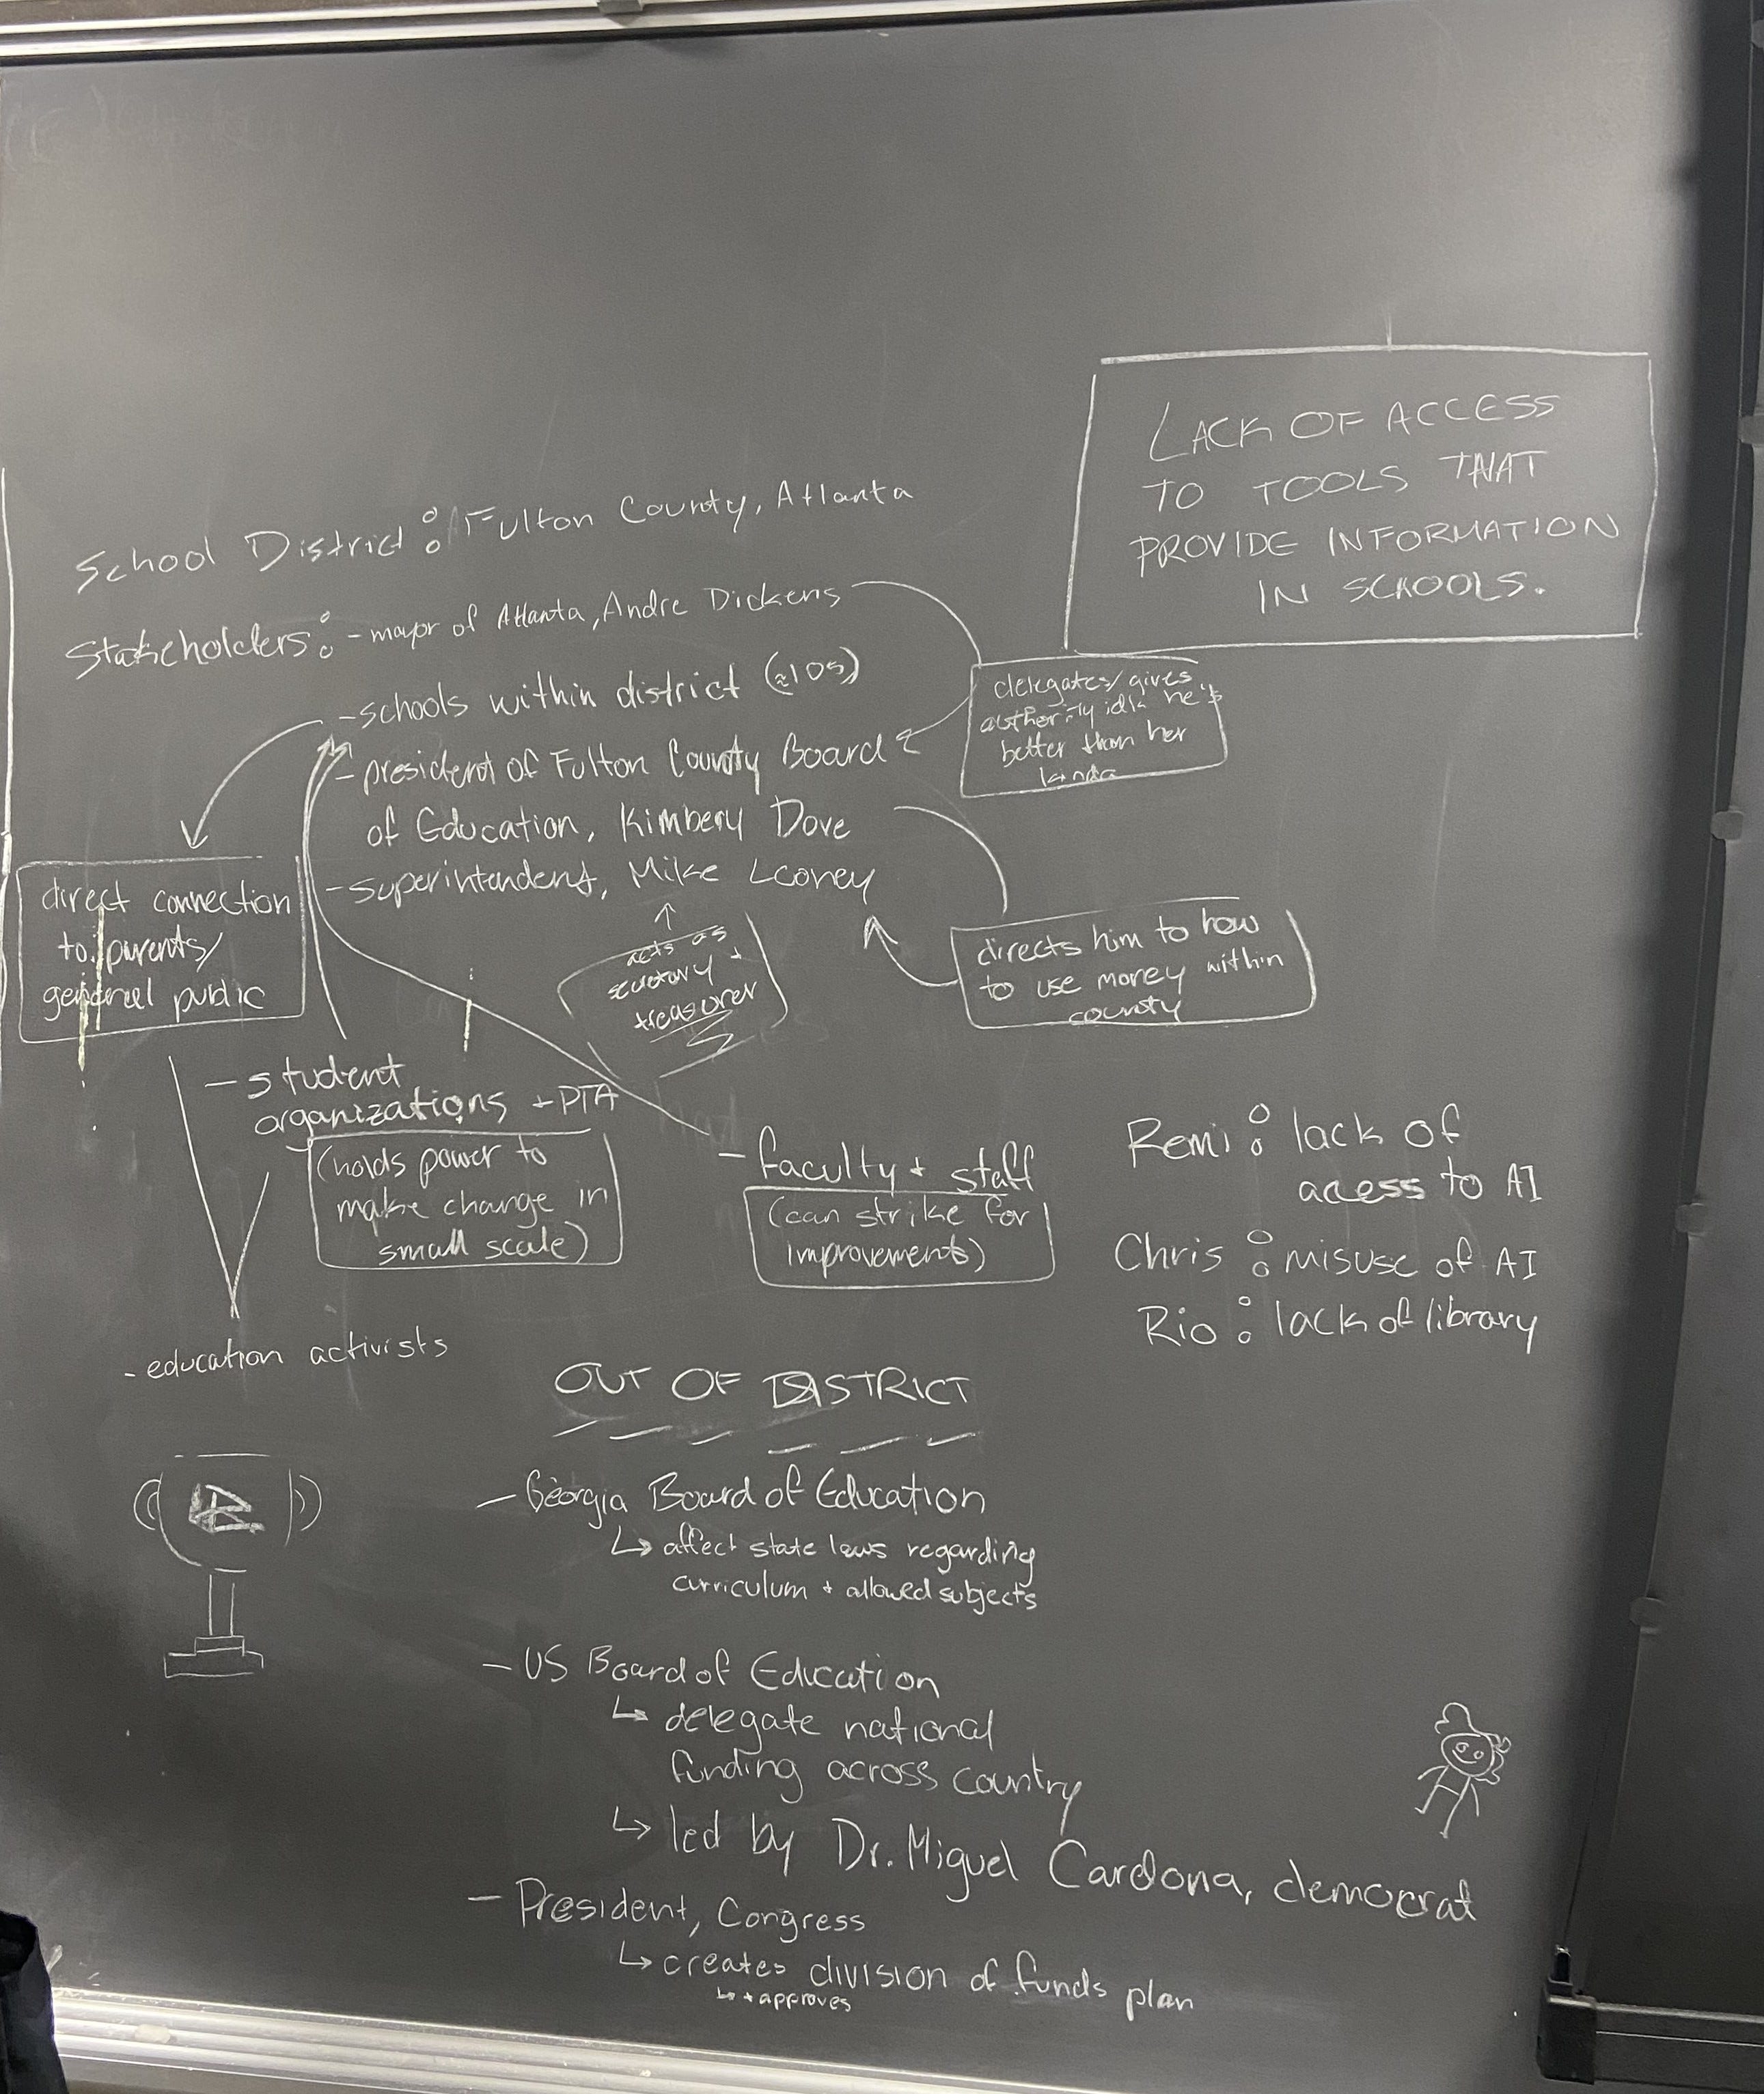 LACK OF ACCESS
TO TOOLS THAT
PROVIDE INFORMATION
IN SCHOOLS.
School District: Fulton County, Atlanta
Stakeholders: - mayor of Atlanta, Andre Dickens
delegates/gives
authority idk he's
better than her
- schools within district (≈105)
- president of Fulton County Board
of Education, Kimbery Dove
- superintendent, Mike Looney
direct connection
to parents/
general public
acts as
treasurer
directs him to how
to use money within
county
- student
organizations + PTA
(holds power to
make change in
small scale)
- faculty + staff
(can strike for
improvements)
- education activists
Remi: lack of
acess to AI
Chris: misuse of AI
Rio: lack of library
OUT OF DISTRICT
- Georgia Board of Education
↳ affect state laws regarding
curriculum + allowed subjects
- US Board of Education
↳ delegate national
funding across country
↳ led by Dr. Miguel Cardona, democrat
- President, Congress
↳ creates division of funds plan
↳ + approves